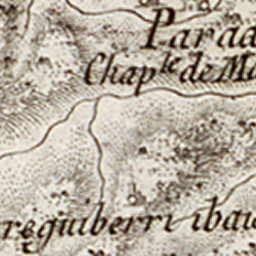 Parad
Chap.le de Ma
reguiberri ibau